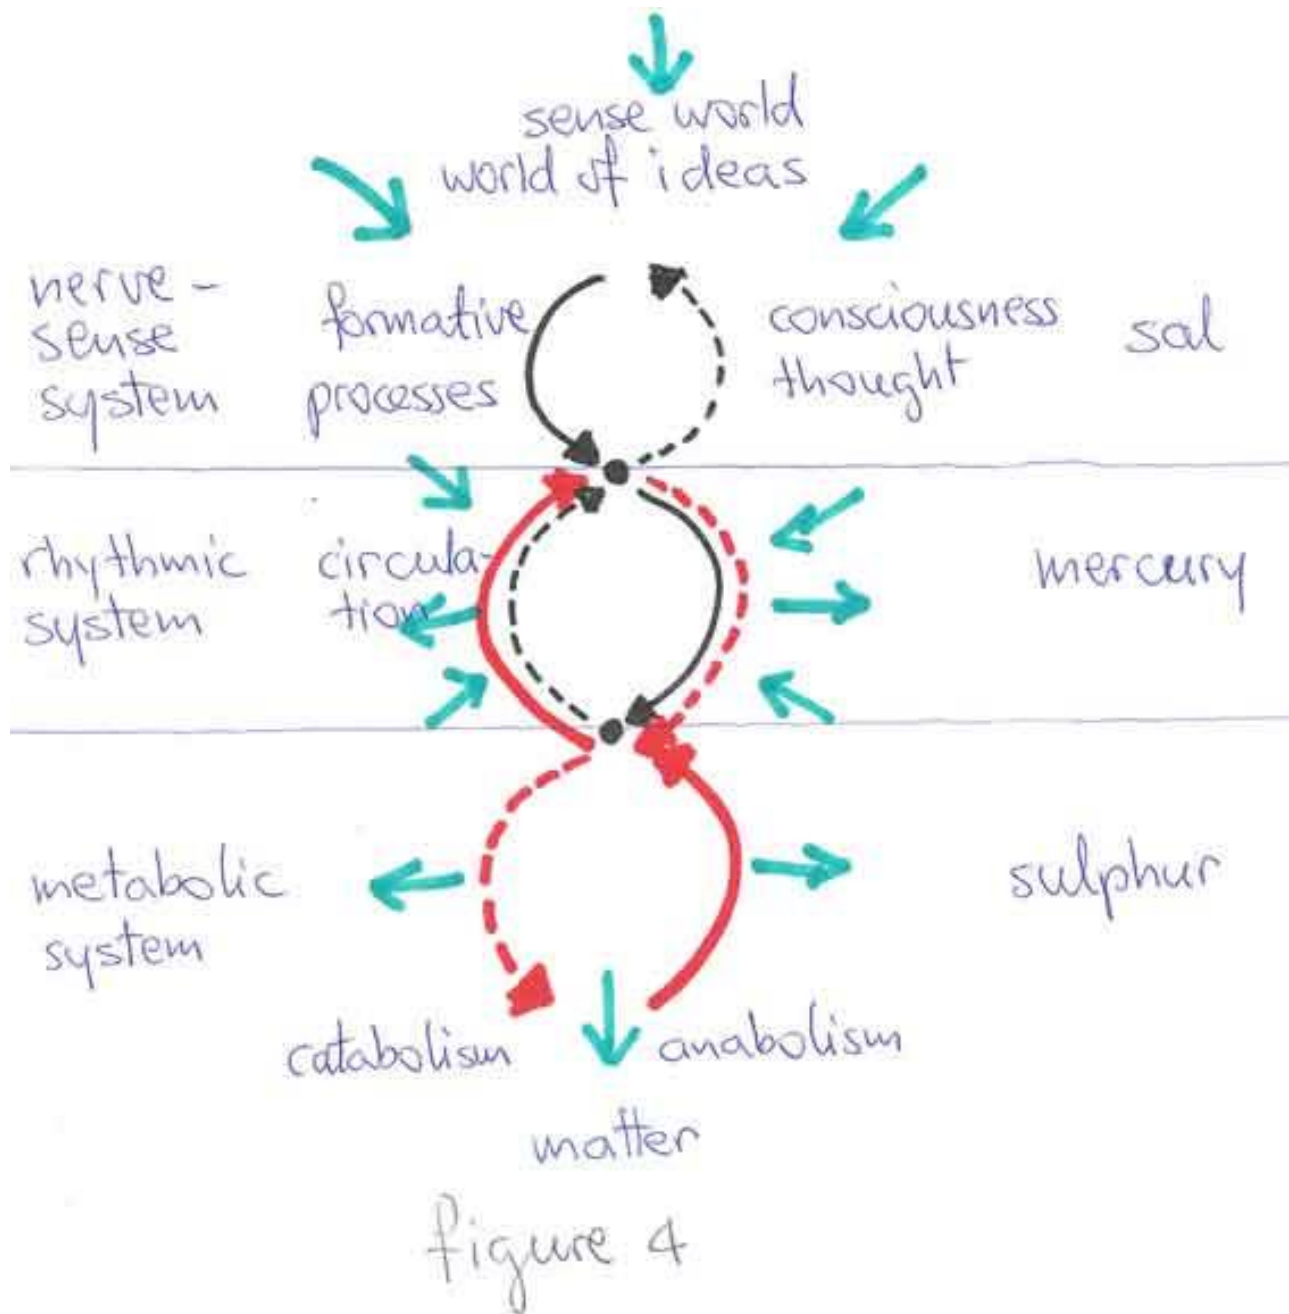 sense world
world of ideas
nerve-
sense
system
formative
processes
consciousness
thought
sal
rhythmic
system
circula-
tion
mercury
metabolic
system
sulphur
catabolism
anabolism
matter
figure 4